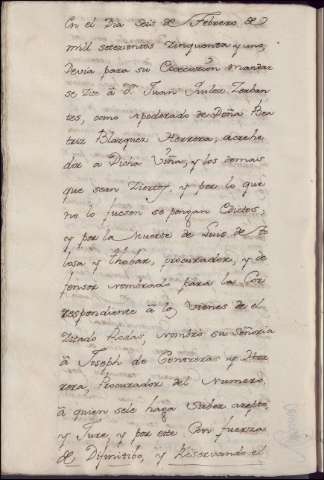 En el Dia Seis de Febrero de
mil setezientos Zinquenta y uno,
Devia para su Execuzion mandar
se Zite â Dn. Juan Zerban
tes, como Apoderado de Doña Bea
triz Blazquez Herrera, acrehe
dor â Dicha Viña, y los demas
que sean Ziertos, y por lo que
no lo fuesen se pongan Edictos,
y por la Muerte de Luis de
losa y procurador, y de
fensor nombrado para lo Cor
respondiente â los Vienes de el
Estado nombró su Señoria
â Joseph de Contreras y Her
rera, Procurador del Numero,
â quien sele haga Saber azepte,
y Jure, y por este Con fuerza
de Difinitibo, y Reservando el